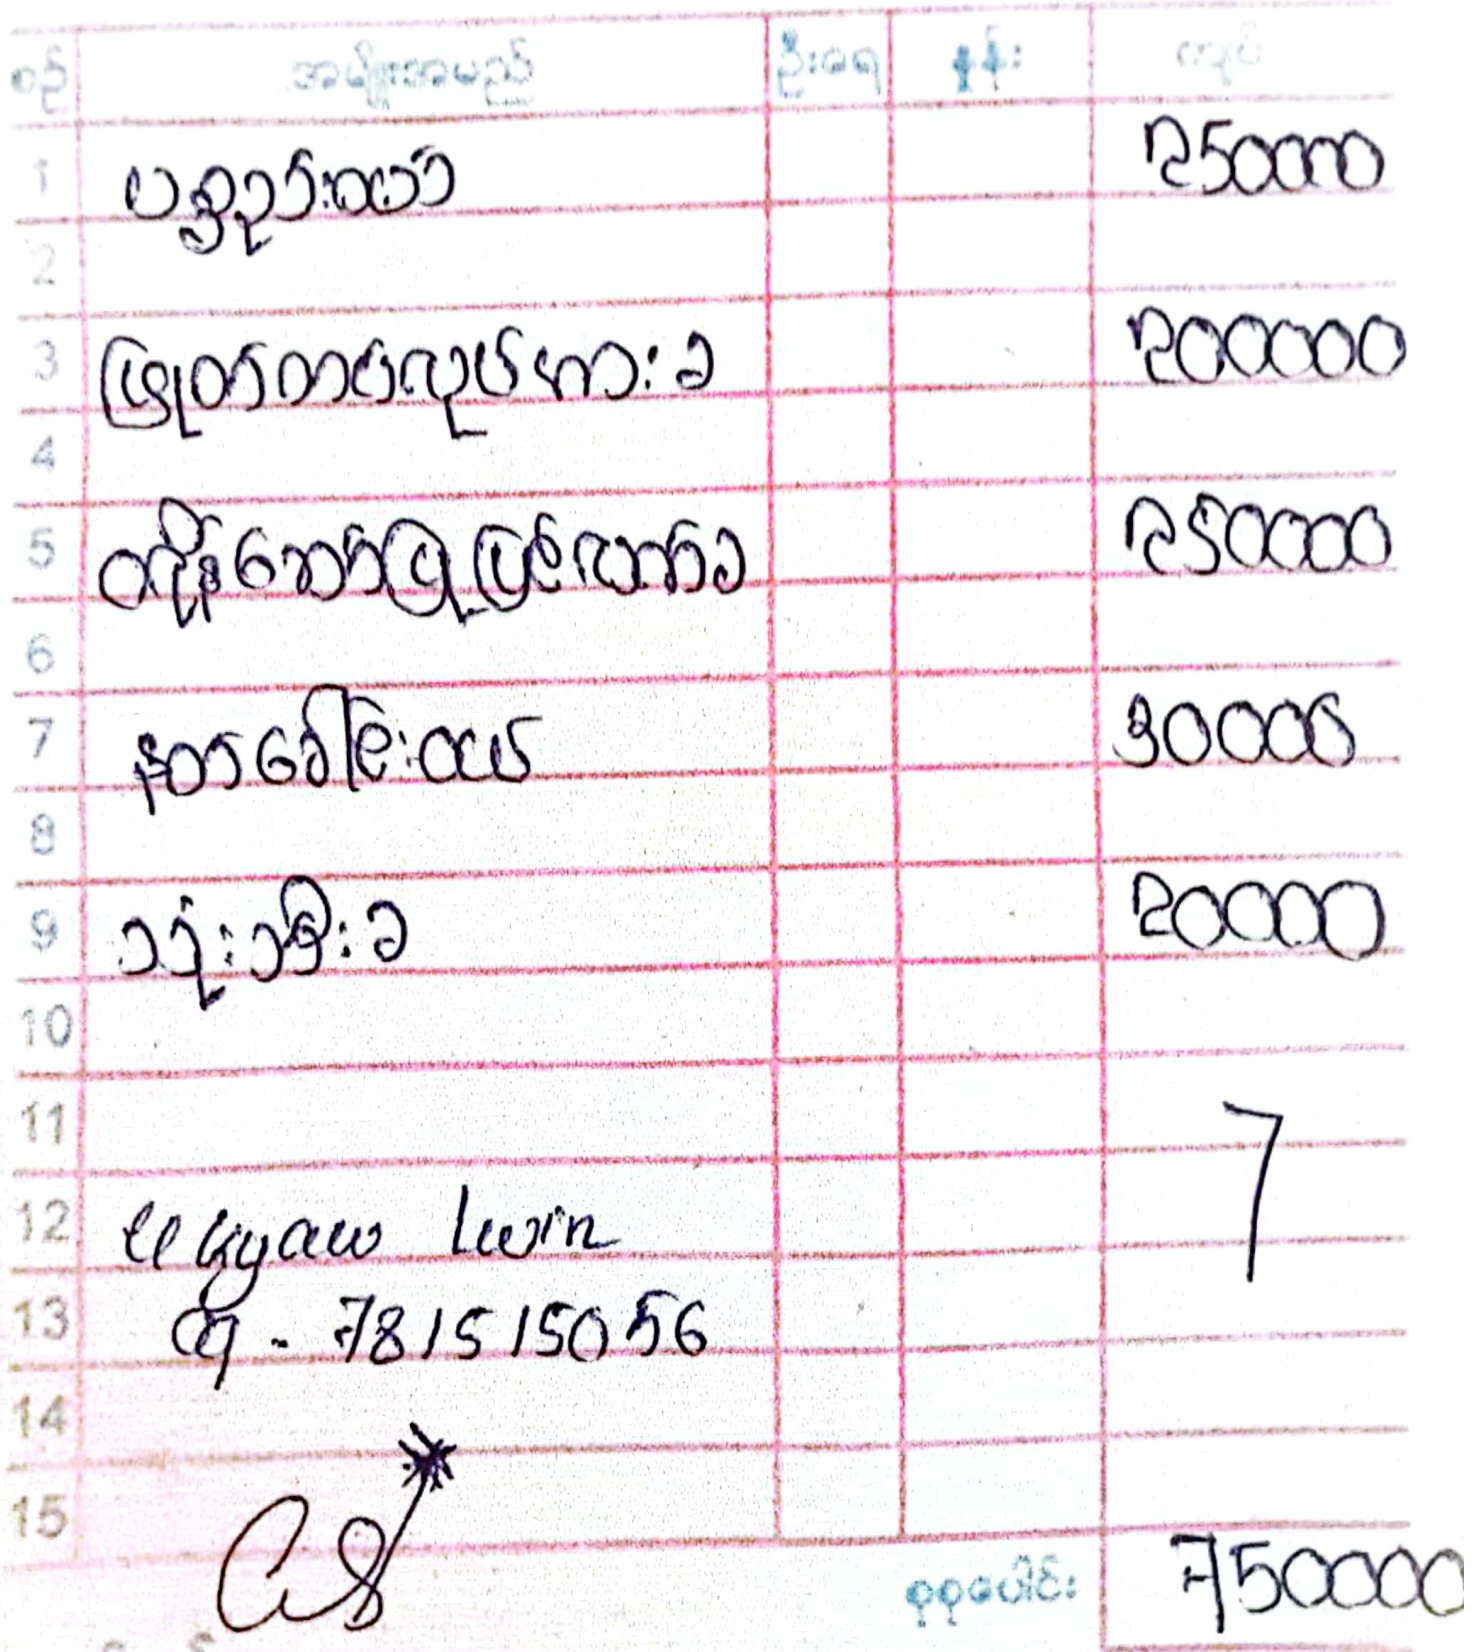 စဉ် အမျိုးအမည် ဦးရေ နှုန်း ကျပ်
1 ပစ္စည်းဖိုး 250000
2
3 ဖြုတ်တပ်လုပ်အားခ 200000
4
5 250000
6
7 30000
8
9 သုံးဘီးခ 20000
10
11
12 U Kyaw Lwin
13 09 - 781515056
14
15
စုစုပေါင်း 750000